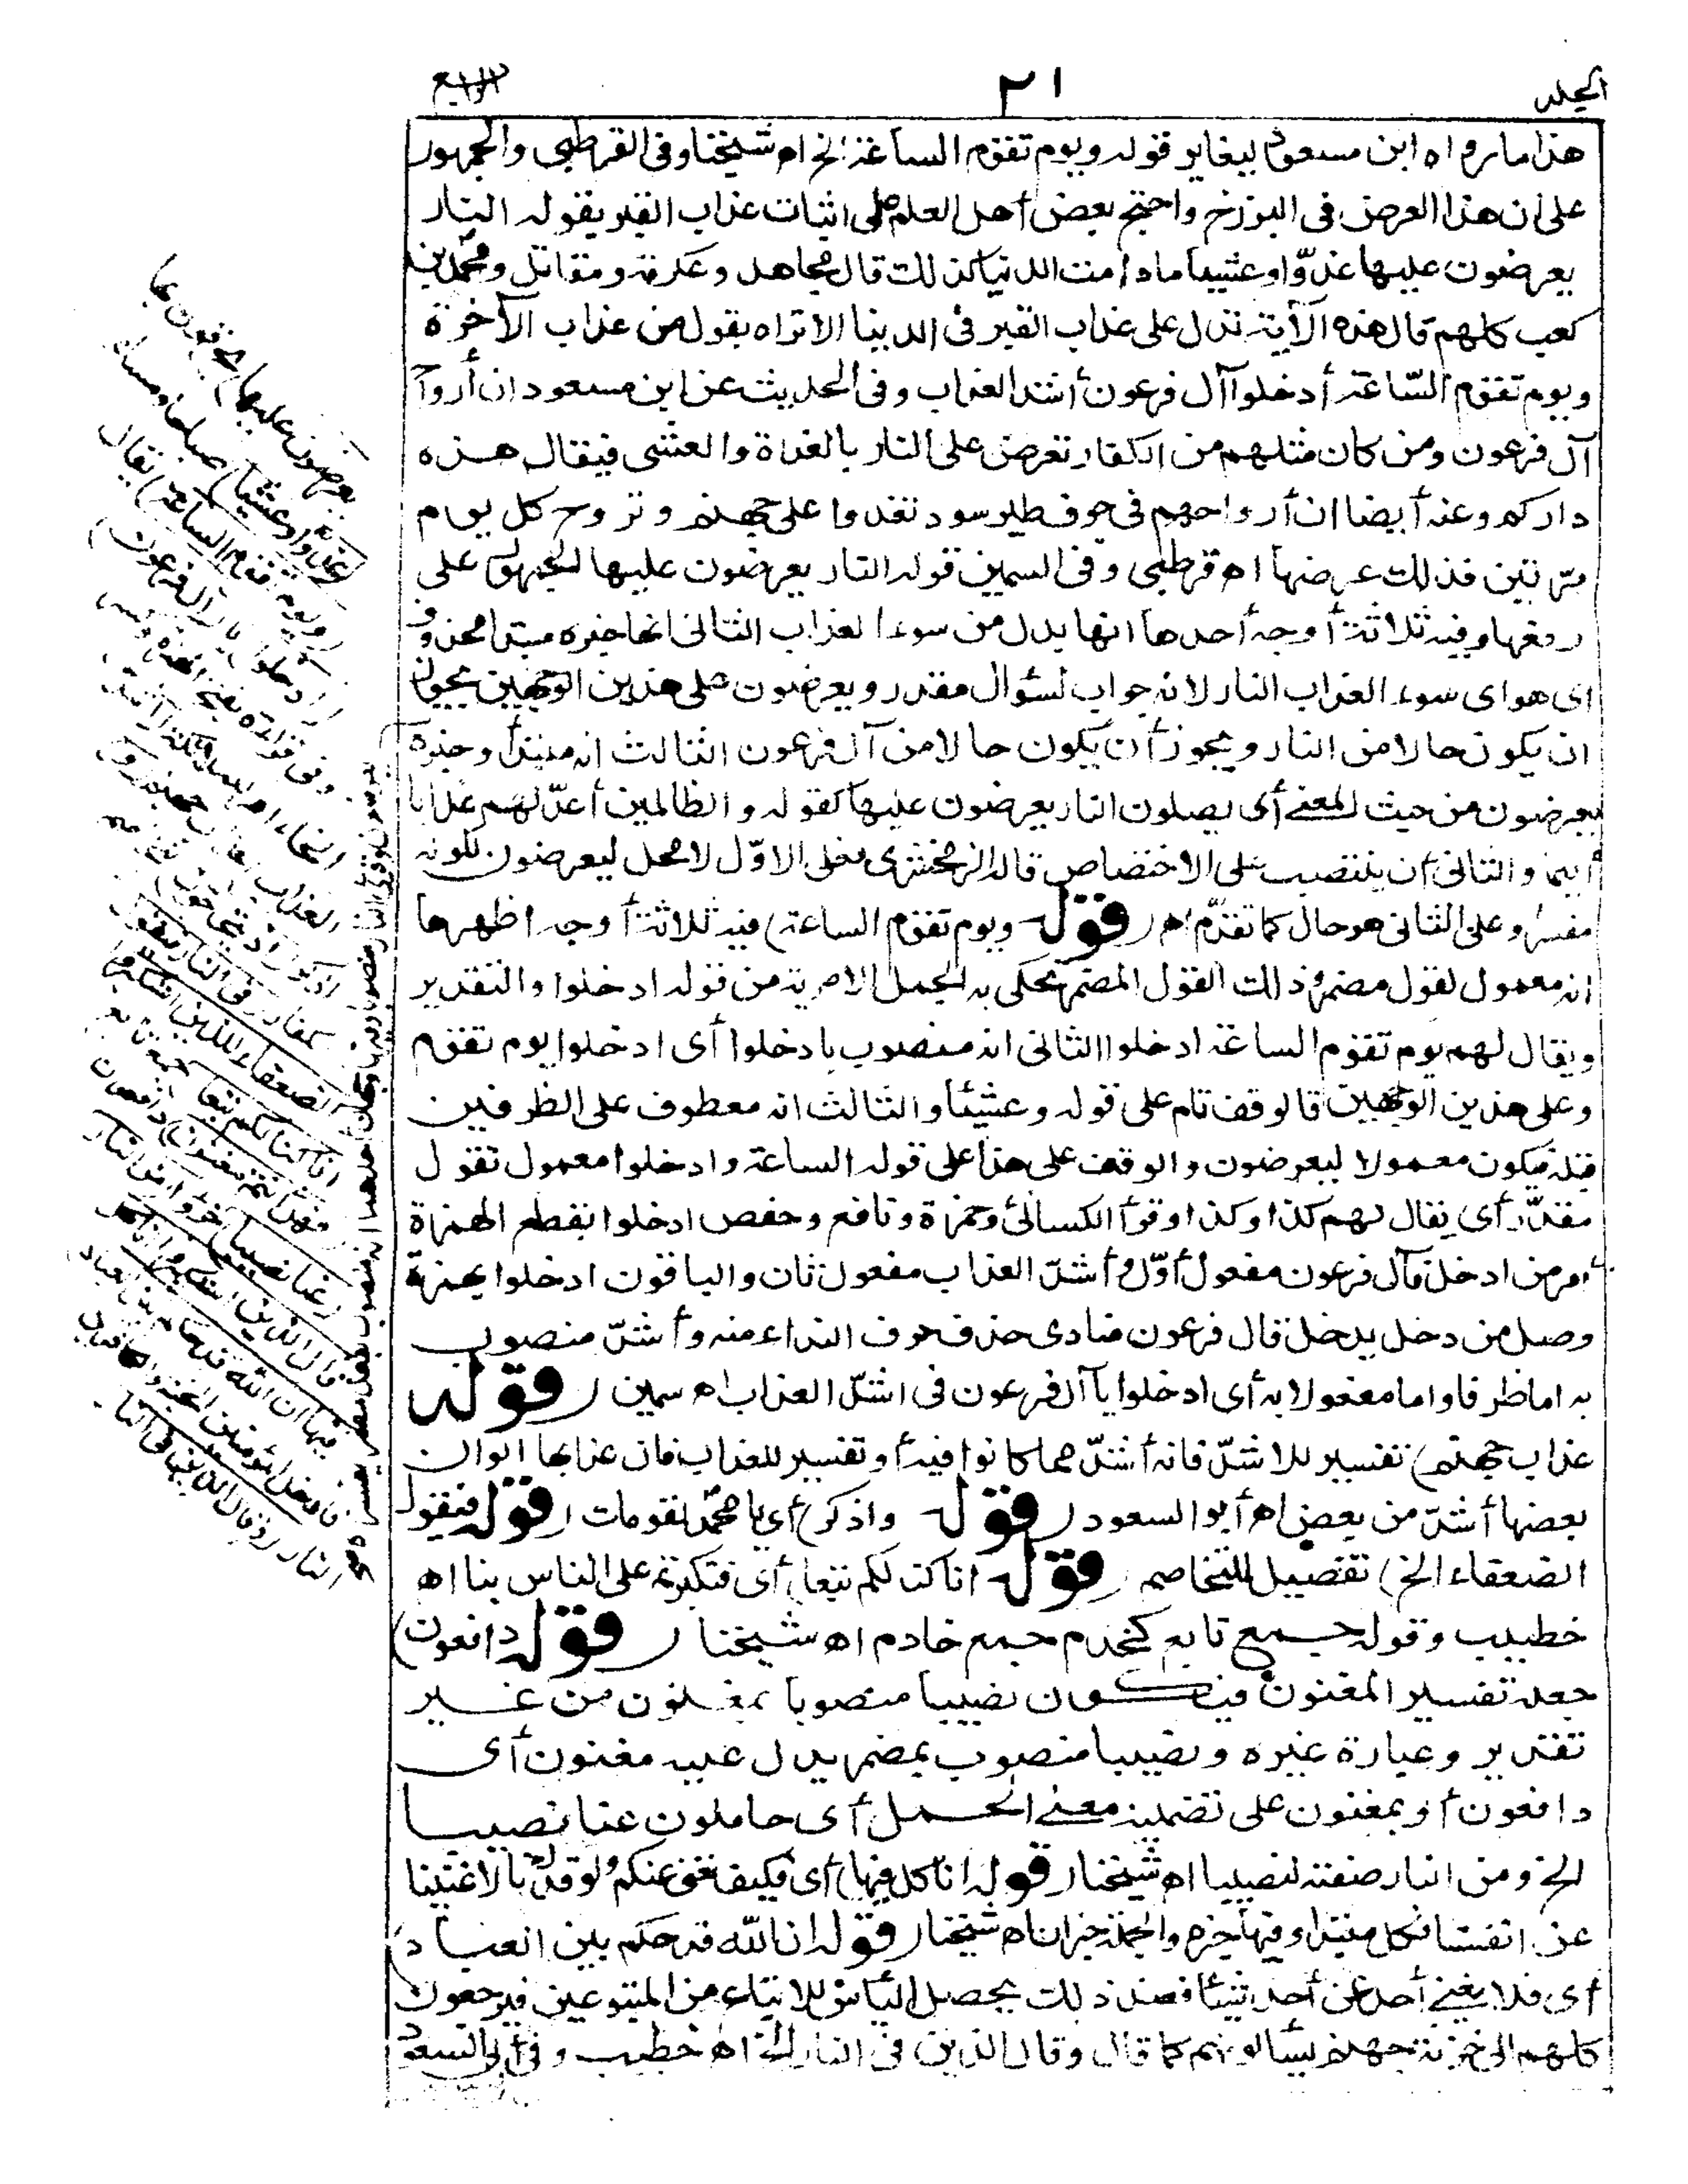 المجلد
٢١
الرابع
هذا ما رواه ابن مسعود ليغاير قوله ويوم تقوم الساعة الخ اه شيخنا وفى القرطبى والجمهور
على ان هذا العرض فى البرزخ واحتج بعض أهل العلم على اثبات عذاب القبر بقوله النار
يعرضون عليها غدوّا وعشيا ما دامت الدنيا كذلك قال مجاهد وعكرمة ومقاتل ومحمد بن
كعب كلهم قال هذه الآية تدل على عذاب القبر فى الدنيا الا تراه يقول من عذاب الآخرة
ويوم تقوم السّاعة أدخلوا آل فرعون أشد العذاب وفى الحديث عن ابن مسعود ان أرواح
آل فرعون ومن كان مثلهم من الكفار تعرض على النار بالغداة والعشى فيقال هذه
داركم وعنه أيضا ان أرواحهم فى جوف طير سود تغدوا على جهنم وتروح كل يوم
مرّتين فذلك عرضها اه قرطبى وفى السمين قوله النار يعرضون عليها الجمهور على
رفعها وفيه ثلاثة أوجه أحدها انها بدل من سوء العذاب الثانى انها خبره مبتدا محذوف
اى هو اى سوء العذاب النار لانه جواب لسؤال مقدر ويعرضون على هذين الوجهين يجوز
ان يكون حالا من النار ويجوز أن يكون حالا من آل فرعون الثالث انه مبتدأ وخبره
يعرضون من حيث المعنى أى يصلون النار يعرضون عليها كقوله والظالمين أعدّ لهم عذابا
أليما والثانى أن ينتصب على الاختصاص قاله الزمخشرى فعلى الاوّل لا محل ليعرضون لكونه
مفسرا وعلى الثانى هو حال كما تقدّم اه (قوله ويوم تقوم الساعة) فيه ثلاثة أوجه اظهرها
انه معمول لقول مضمر وذلك القول المضمر محكى به الجمل الامرية من قوله ادخلوا والتقدير
ويقال لهم يوم تقوم الساعة ادخلوا الثانى انه منصوب بادخلوا أى ادخلوا يوم تقوم
وعلى هذين الوجهين فالوقف تام على قوله وعشيّا والثالث انه معطوف على الظرفين
قبله فيكون معمولا ليعرضون والوقف على هذا على قوله الساعة وادخلوا معمول لقول
مقدّر أى يقال لهم كذا وكذا وقرأ الكسائى وحمزة ونافع وحفص ادخلوا بقطع الهمزة
أمر من ادخل فآل فرعون مفعول أوّل وأشدّ العذاب مفعول ثان والباقون ادخلوا بهمزة
وصل من دخل يدخل فآل فرعون منادى حذف حرف النداء منه وأشدّ منصوب
به اما ظرفا واما مفعولا به أى ادخلوا يا آل فرعون فى اشدّ العذاب اه سمين (قوله
عذاب جهنم) تفسير للاشدّ فانه أشدّ مما كانوا فيه أو تفسير للعذاب فان عذابها الوان
بعضها أشدّ من بعض اه أبو السعود (قوله واذكر) أى يا محمد لقومك (قوله فيقول
الضعفاء الخ) تفصيل للتخاصم (قوله انا كنا لكم تبعا) أى فتكبرتم على الناس بنا اه
خطيب وقوله جمع تابع كخدم جمع خادم اه شيخنا (قوله دافعون)
جعله تفسيرا لمغنون فيكون نصيبا منصوبا بمغنون من غير
تقدير وعبارة غيره ونصيبا منصوب بمضمر يدل عليه مغنون أى
دافعون أو بمغنون على تضمينه معنى الحمل أى حاملون عنا نصيبا
الخ ومن النار صفته لنصيبا اه شيخنا (قوله انا كل فيها) أى فكيف نغنى عنكم ولو قدرنا لاغنينا
عن انفسنا فكل مبتدا وفيها خبره والجملة خبر ان اه شيخنا (قوله ان الله قد حكم بين العباد)
أى فلا يغنى أحد عن أحد شيئا فعند ذلك يحصل اليأس للاتباع من المتبوعين فيرجعون
كلهم الى خزنة جهنم يسألونهم كما قال وقال الذين فى النار الخ اه خطيب وفى أبى السعود
يعرضون عليها) يحرقون بها
(غدوّا وعشيا) صباحا ومساء
(ويوم تقوم الساعة) يقال
(ادخلوا) يا (آل فرعون)
وفى قراءة بفتح الهمزة وكسر
الخاء امر للملائكة (أشدّ
العذاب) عذاب جهنم (و)
اذكر (اذ يتحاجون)
(فى النار فيقول
الضعفاء للذين استكبروا
انا كنا لكم تبعا)
(فهل أنتم مغنون) دافعون
(عنا نصيبا) جزأ (من النار
قال الذين استكبروا انا كل
فيها ان الله قد حكم بين العباد)
فادخل المؤمنين الجنة والكافرين
النار (وقال الذين فى النار